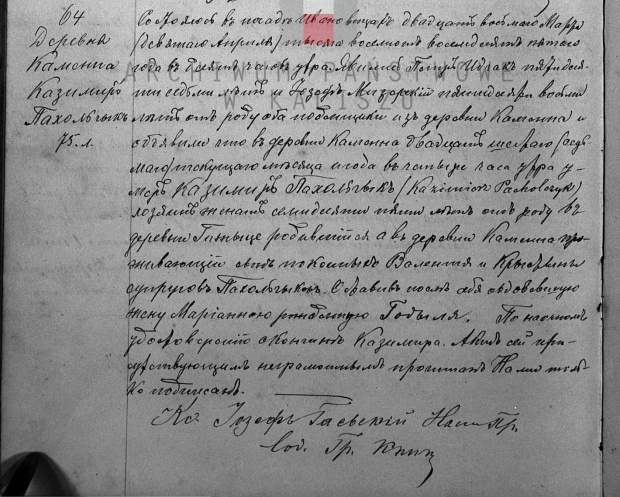 64
Деревня
Каменна
Казимиръ
Пахольчыкъ
75. л.
Состоялось въ посадѣ Ивановицахъ двадцать восьмаго Марта
(девятаго Апрѣля) тысяча восемьсотъ восемьдесятъ пятаго
года въ часовъ утра. Явились Петръ пятидеся-
ти семи лѣтъ и Іозефъ пятидесяти восьми
лѣтъ отъ роду оба изъ деревни Каменна и
объявили что въ деревни Каменна двадцать шестаго (седь-
маго) текущаго мѣсяца и года въ четыре часа утра у-
меръ Казимиръ Пахольчыкъ (Kazimierz Pacholczyk)
женатъ семидесяти пяти лѣтъ отъ роду въ
деревни родившійся а въ деревни Каменна про-
живающій сынъ покойныхъ Валентія и Крыстыны
супруговъ Пахольчыковъ. Оставивъ послѣ себя овдовѣвшую
жену Маріанну рожденную Гобыля. По наочномъ
удостовѣреніи о кончинѣ Казимира. Актъ сей при-
сутствующимъ неграмотнымъ прочитанъ Нами толь-
ко подписанъ.
Кс. Іозефъ Гаевскій Наст. Пр.
Сод. Гр. Книг
ARCHIWUM PAŃSTWOWE
W KALISZU